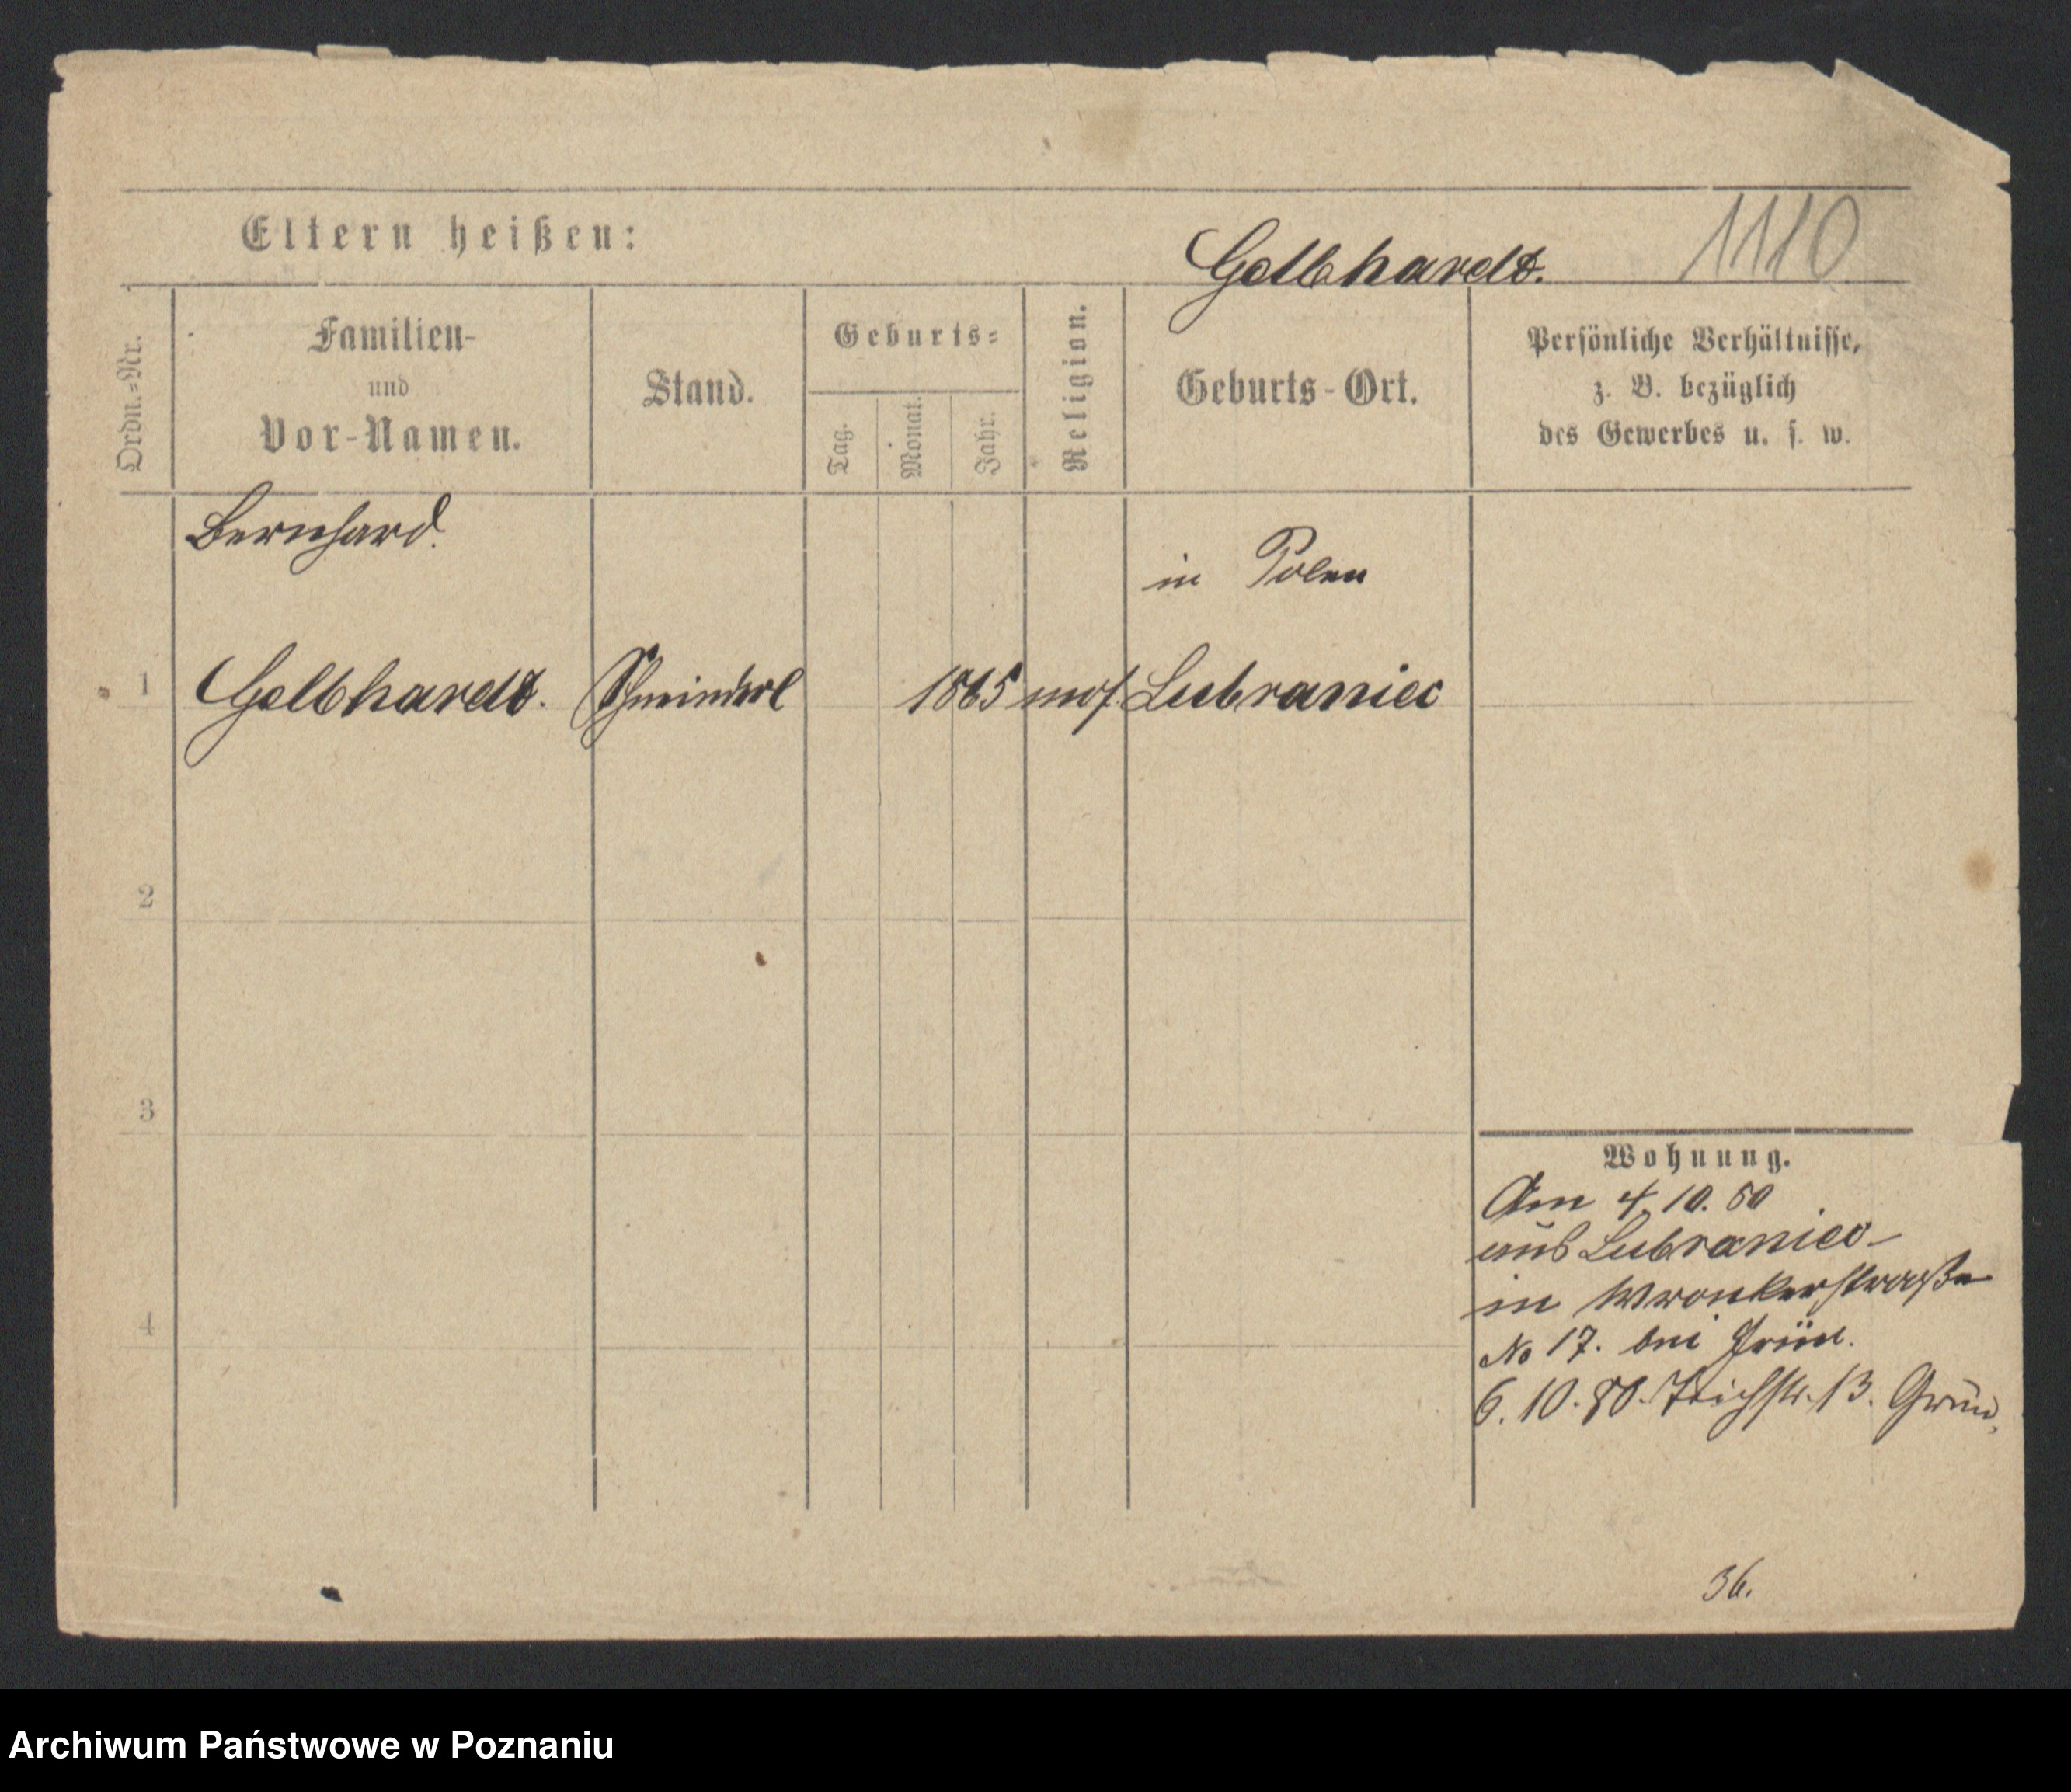 Eltern heißen:
Gelbhardt.
1110
Ordn.=Nr.
Familien-
und
Vor-Namen.
Stand.
Geburts=
Tag.
Monat.
Jahr.
Religion.
Geburts-Ort.
Persönliche Verhältnisse,
z. B. bezüglich
des Gewerbes u. s. w.
Bernhard.
in Polen
1 Gelbhardt. 1865 mos. Lubraniec
2
3
4
Wohnung.
Am 4. 10. 80
aus Lubraniec
in Wronkerstraße
No 17. bei Grün.
6. 10. 80. Teichstr. 13. Grün,
36.
Archiwum Państwowe w Poznaniu